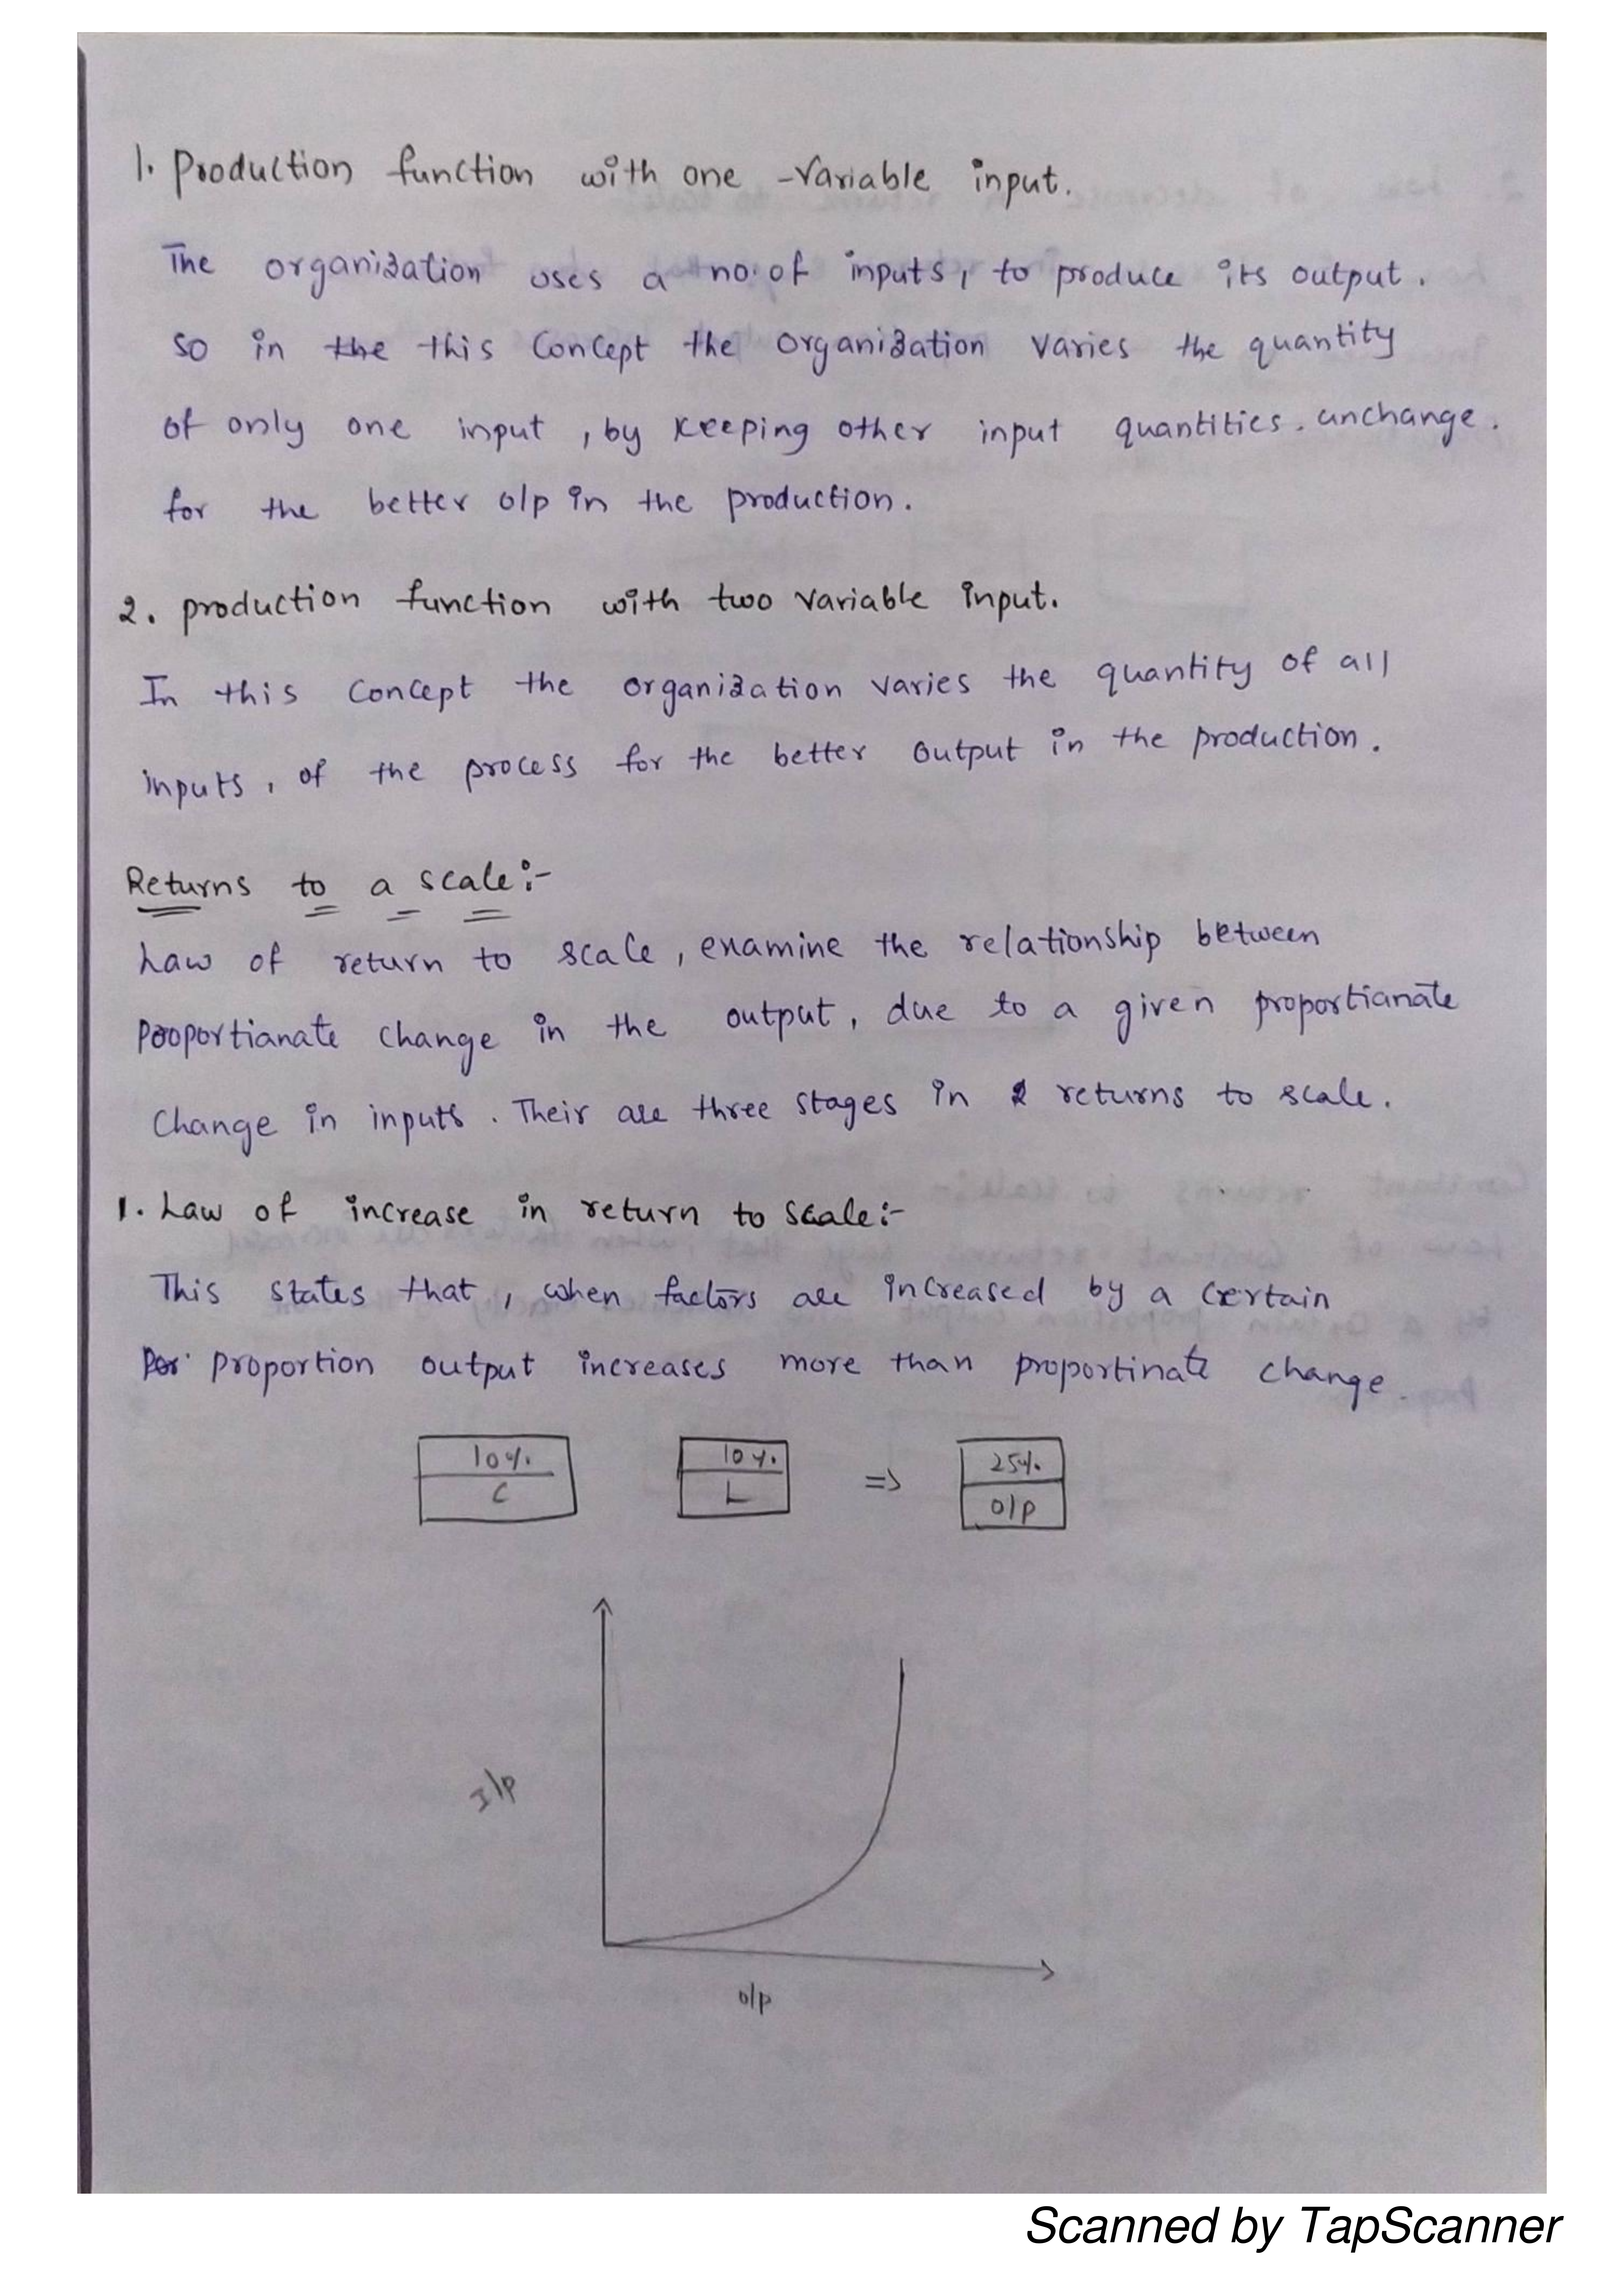 1. Production function with one -variable input.
The organization uses a no. of inputs, to produce its output.
So in the this Concept the organization varies the quantity
of only one input, by keeping other input quantities. unchange.
for the better o/p in the production.
2. production function with two variable input.
In this concept the organization varies the quantity of all
inputs, of the process for the better output in the production.
Returns to a scale:-
Law of return to scale, examine the relationship between
Pooportianate change in the output, due to a given proportianate
Change in inputs. Their are three stages in returns to scale.
1. Law of increase in return to scale:-
This states that, when factors are increased by a certain
Por proportion output increases more than proportinate change.
10% 10% => 25%
C L O/P
I/P
o/p
Scanned by TapScanner